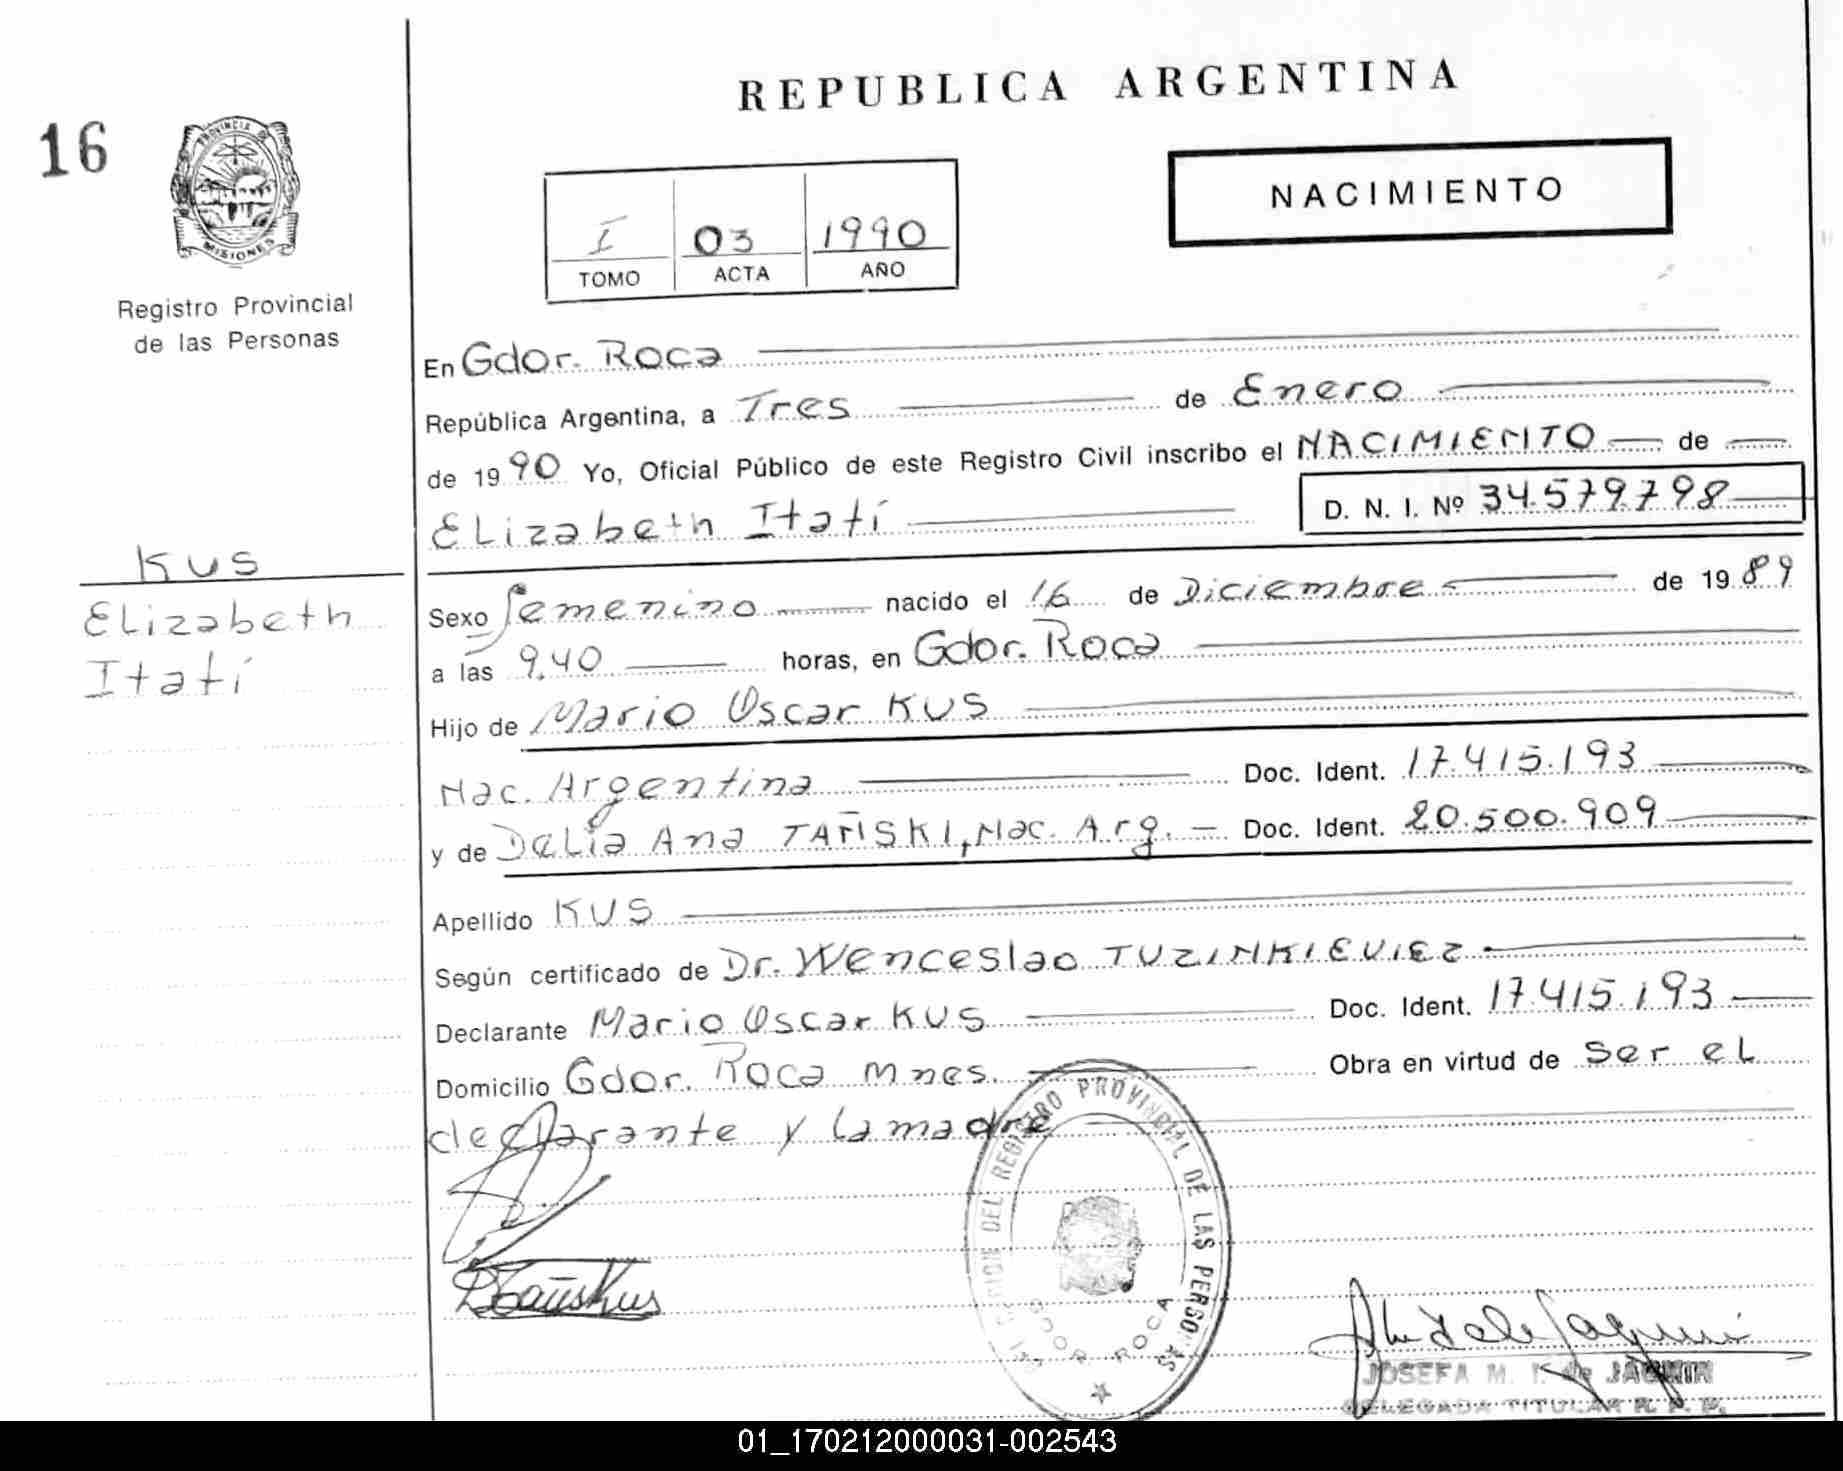 REPUBLICA ARGENTINA
16
PROVINCIA DE
MISIONES
Registro Provincial
de las Personas
NACIMIENTO
I 03 1990
TOMO ACTA AÑO
En Gdor. Roca
República Argentina, a Tres de Enero
de 1990 Yo, Oficial Público de este Registro Civil inscribo el NACIMIENTO de
Elizabeth Itatí D. N. I. Nº 34.579.798
KUS
Elizabeth
Itatí
Sexo femenino nacido el 16 de Diciembre de 1989
a las 9,40 horas, en Gdor. Roca
Hijo de Mario Oscar KUS
Nac. Argentina Doc. Ident. 17.415.193
y de Delia Ana TAÑSKI, Nac. Arg. Doc. Ident. 20.500.909
Apellido KUS
Según certificado de Dr. Wenceslao TUZINKIEVIEZ
Declarante Mario Oscar KUS Doc. Ident. 17.415.193
Domicilio Gdor. Roca Mnes. Obra en virtud de ser el
declarante y la madre
DEL REGISTRO PROVINCIAL DE LAS PERSONAS
GDOR. ROCA
JOSEFA M. I. de JAGMIN
DELEGADA TITULAR R. P. P.
01_170212000031-002543